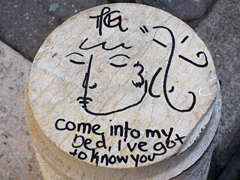 come into my
bed, i've got
to know you